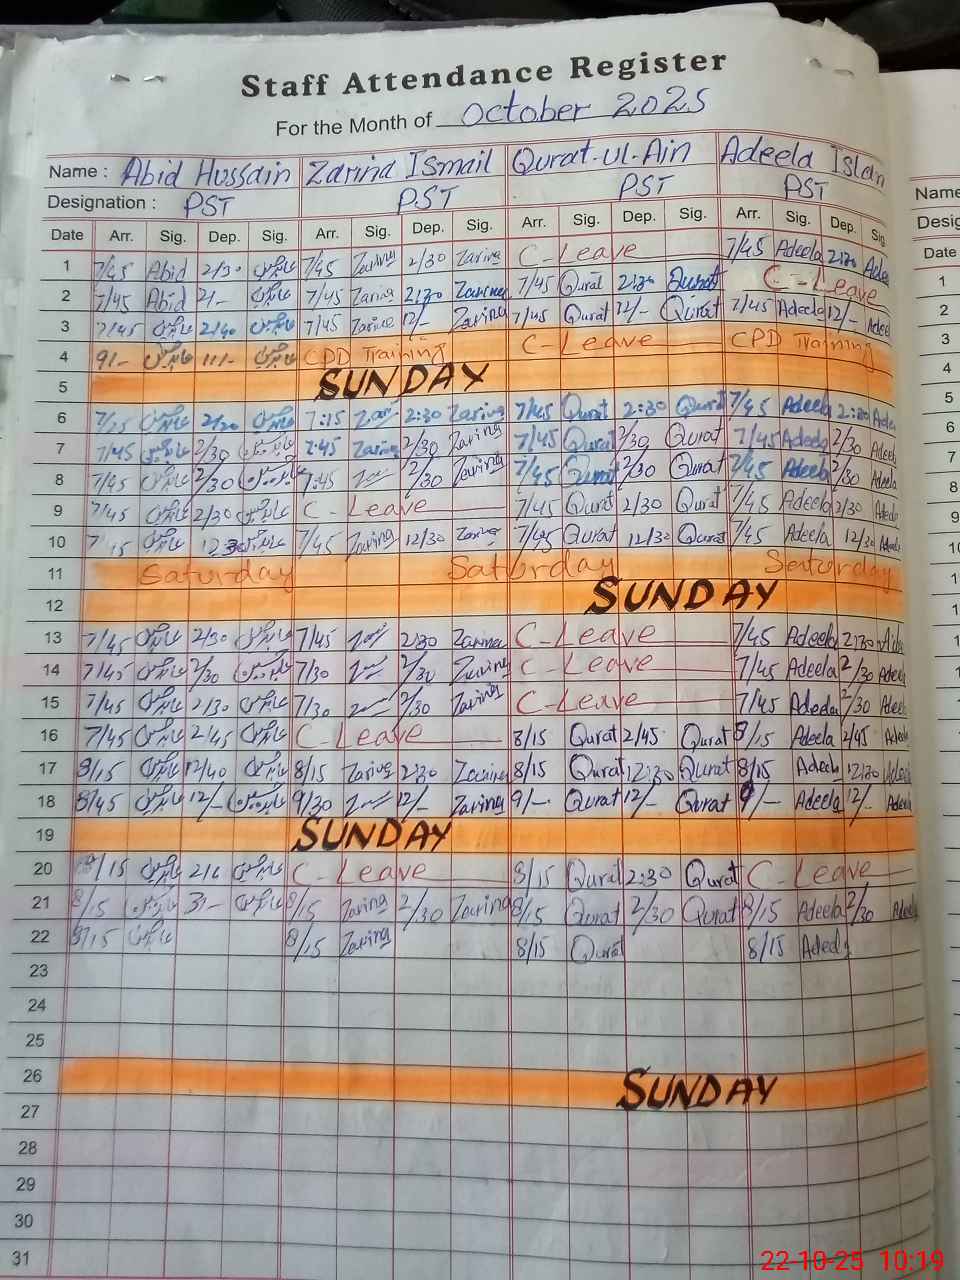 Staff Attendance Register
For the Month of October 2025
Name : Abid Hussain Zarina Ismail Qurat-ul-Ain Adeela Islam
Designation : PST PST PST PST
Date Arr. Sig. Dep. Sig. Arr. Sig. Dep. Sig. Arr. Sig. Dep. Sig. Arr. Sig. Dep. Sig.
1 7/45 Abid 2/30 7/45 Zarina 2/30 Zarina C-Leave 7/45 Adeela 2:30 Adee
2 7/45 Abid 2/- 7/45 Zarina 2:30 Zarina 7/45 Qurat 2:30 Qurat C-Leave
3 7/45 2/40 7/45 Zarina 12/- Zarina 7/45 Qurat 12/- Qurat 7/45 Adeela 12/- Adee
4 9/- 11/- CPD Training C-Leave CPD Training
5 SUNDAY
6 7/25 7:15 Zar 2:30 Zarina 7/45 Qurat 2:30 Qurat 7/45 Adeela 2:30 Adeela
7 7/45 2/30 7:45 Zarina 2/30 Zarina 7/45 Qurat 2/30 Qurat 7/45 Adeela 2/30 Adeela
8 7/45 2/30 7:45 2/30 Zarina 7/45 Qurat 2/30 Qurat 7/45 Adeela 2/30 Adeela
9 7/45 2/30 C-Leave 7/45 Qurat 2/30 Qurat 7/45 Adeela 2/30 Adeela
10 7/45 Zarina 12/30 Zarina 7/45 Qurat 12/30 Qurat 7/45 Adeela 12/30 Adeela
11 Saturday Saturday Saturday
12 SUNDAY
13 7/45 2/30 7/45 2:30 Zarina C-Leave 7/45 Adeela 2:30
14 7/45 2/30 7/30 2/30 Zarina C-Leave 7/45 Adeela 2/30 Adeela
15 7/45 2/30 7/30 2/30 Zarina C-Leave 7/45 Adeela 2/30 Adeela
16 7/45 2/45 C-Leave 8/15 Qurat 2/45 Qurat 8/15 Adeela 2/45 Adeela
17 8/15 12/40 8/15 Zarina Zarina 8/15 Qurat 12:30 Qurat 8/15 Adeela 12:30 Adeela
18 8/45 12/- 9/30 12/- Zarina 9/- Qurat 12/- Qurat 9/- Adeela 12/- Adeela
19 SUNDAY
20 8/15 C-Leave 8/15 Qurat 2:30 Qurat C-Leave
21 8/15 3/- 8/15 Zarina 2/30 Zarina 8/15 Qurat 2/30 Qurat 8/15 Adeela 2/30 Adeela
22 8/15 8/15 Zarina 8/15 Qurat 8/15 Adeela
23
24
25
26 SUNDAY
27
28
29
30
31
Name
Desig
Date
1
2
3
4
5
6
7
8
9
22-10-25 10:19